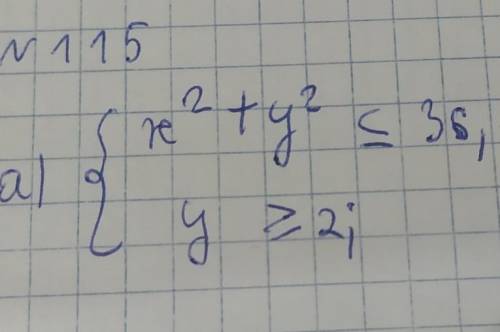 № 115
а) { x² + y² ≤ 36,
y ≥ 2;